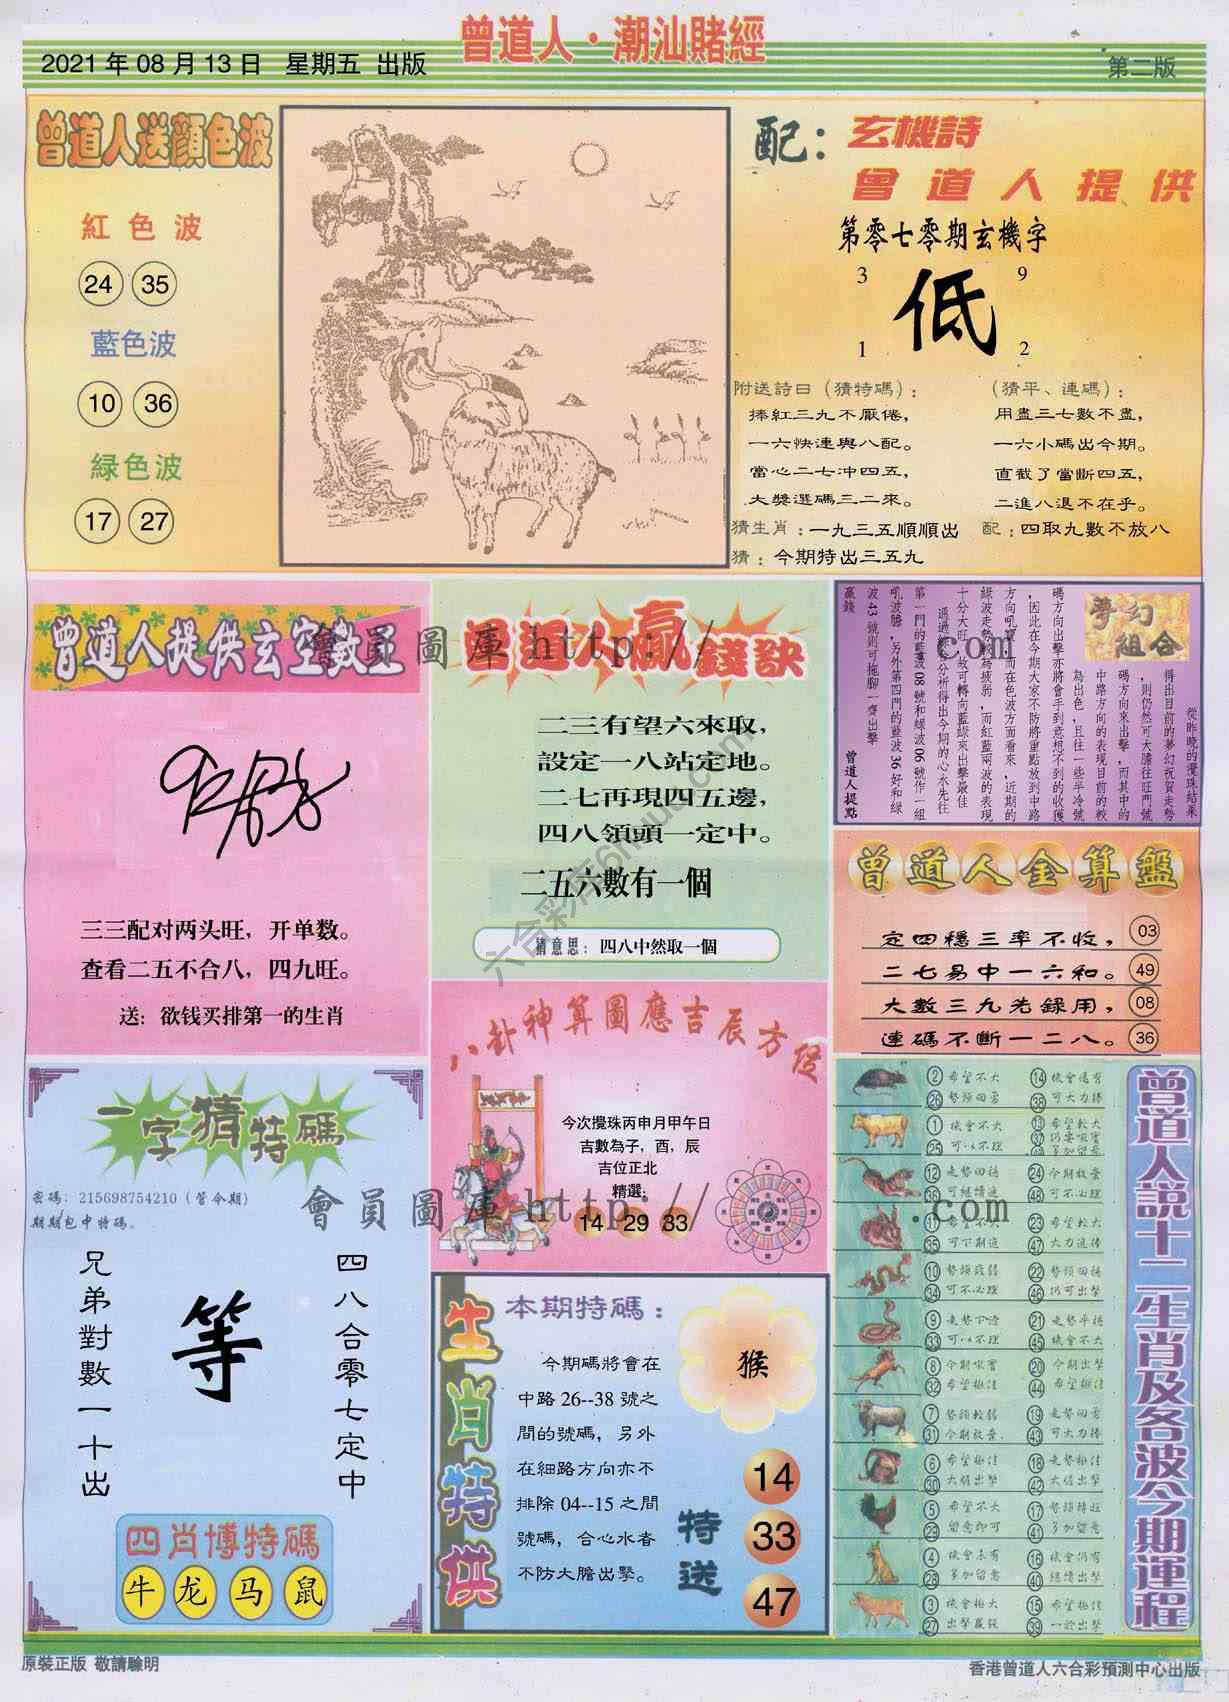 曾道人·潮汕賭經
2021 年 08 月 13 日 星期五 出版
第二版
曾道人送顔色波
紅色波
24 35
藍色波
10 36
緑色波
17 27
配：
玄機詩
曾道人提供
第零七零期玄機字
3 9
低
1 2
附送詩曰（猜特碼）：
捧紅三九不厭倦，
一六快連與八配。
當心二七沖四五，
大獎選碼三二來。
（猜平、連碼）：
用盡三七數不盡，
一六小碼出今期。
直截了當斷四五，
二進八退不在乎。
猜生肖：一九三五順順出
配：四取九數不放八
猜：今期特出三五九
曾道人提供玄空數王
三三配对两头旺，开单数。
查看二五不合八，四九旺。
送：欲钱买排第一的生肖
會員圖庫 http://
.com
曾道人贏錢訣
二三有望六來取，
設定一八站定地。
二七再現四五邊，
四八領頭一定中。
二五六數有一個
猜意思：四八中然取一個
夢幻組合
從昨晚的攪珠結果
得出目前的夢幻祝賀走勢
為出色，且往一些半冷號
中路方向的表現目前的較
碼方向來出擊，而其中的
，則仍然可大膽往旺門號
碼方向出擊亦將會手到意想不到的收獲
，因此在今期大家不防將重點放到中路
方向吼寶，而在色波方面看來，近期的
綠波走勢較為疲弱，而紅藍兩波的表現
十分大旺，故可轉向藍綠來出擊最佳
通過綜合分析得出今期的心水先往
第一門的藍波 08 號和綠波 06 號作一組
吼波膽，另外第四門的藍波 36 好和綠
波 43 號則可拖腳一齊出擊
贏錢
曾道人提點
曾道人金算盤
定四穩三率不收， 03
二七易中一六和。 49
大數三九先錄用， 08
連碼不斷一二八。 36
八卦神算圖應吉辰方位
今次攪珠丙申月甲午日
吉數為子，酉，辰
吉位正北
精選：
14 29 33
會員圖庫 http://
.com
一字猜特碼
密碼：215698754210（管令期）
期期包中特碼。
四八合零七定中
等
兄弟對數一十出
四肖博特碼
牛 龙 马 鼠
生肖特供
本期特碼：
今期碼將會在
中路 26--38 號之
間的號碼，另外
在細路方向亦不
排除 04--15 之間
號碼，合心水者
不防大膽出擊。
猴
特送
14
33
47
曾道人説十二生肖及各波今期運程
② 希望不大 ⑭ 機會還有
㉖ 勢頭回勇 ㊳ 可大力捧
① 機會不大 ⑬ 希望較大
㉕ 可以不理
⑫ 走勢回穩 ㉔ 今期收棄
㊱ 可繼續追 ㊽ 可不必理
⑪ 希望不大 ㉓ 希望較大
㉟ 可下期追 ㊼ 大力追捧
⑩ 勢頭設弱 ㉒ 勢頭回穩
㉞ 可不必理 ㊻ 仍可出擊
⑨ 走勢下滑 ㉑ 走勢平穩
㉝ 可以不理 ㊺ 機會不大
⑧ 今期吼實 ⑳ 今期出擊
㉜ 希望極佳 ㊹ 希望極佳
⑦ 勢頭較弱 ⑲ 走勢回勇
㉛ 今期放棄 ㊸ 可大力捧
⑥ 希望極佳 ⑱ 走勢極佳
㉚ 大膽出擊 ㊷ 大膽出擊
⑤ 希望不大 ⑰ 勢頭轉旺
㉙ 留意即可 ㊶ 多加留意
④ 機會未有 ⑯ 機會仍有
㉘ 多加留意 ㊵ 繼續出擊
③ 機會極大 ⑮ 希望極佳
㉗ 出擊贏錢 ㊴ 一於出擊
原裝正版 敬請驗明
香港曾道人六合彩預測中心出版